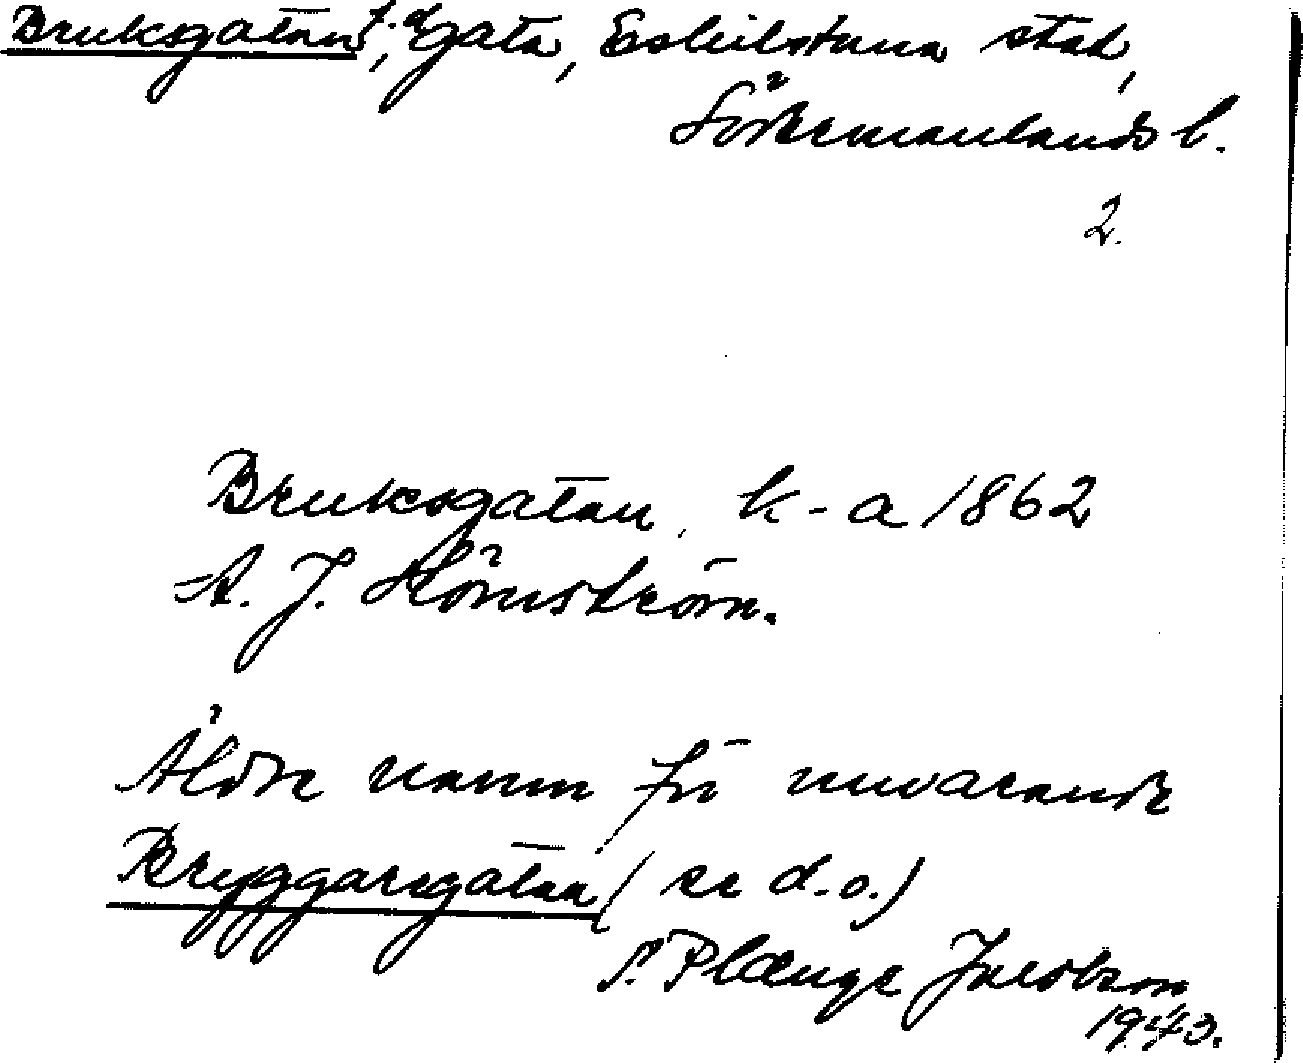 Bruksgatan, f. d. Gata, Eskilstuna stad,
Södermanlands l.
2.
Bruksgatan, k-a 1862
A. J. Hörnström.
Äldre namn för nuvarande
Bryggaregatan (se d. o.)
S. Plænge Jacobson
1943.